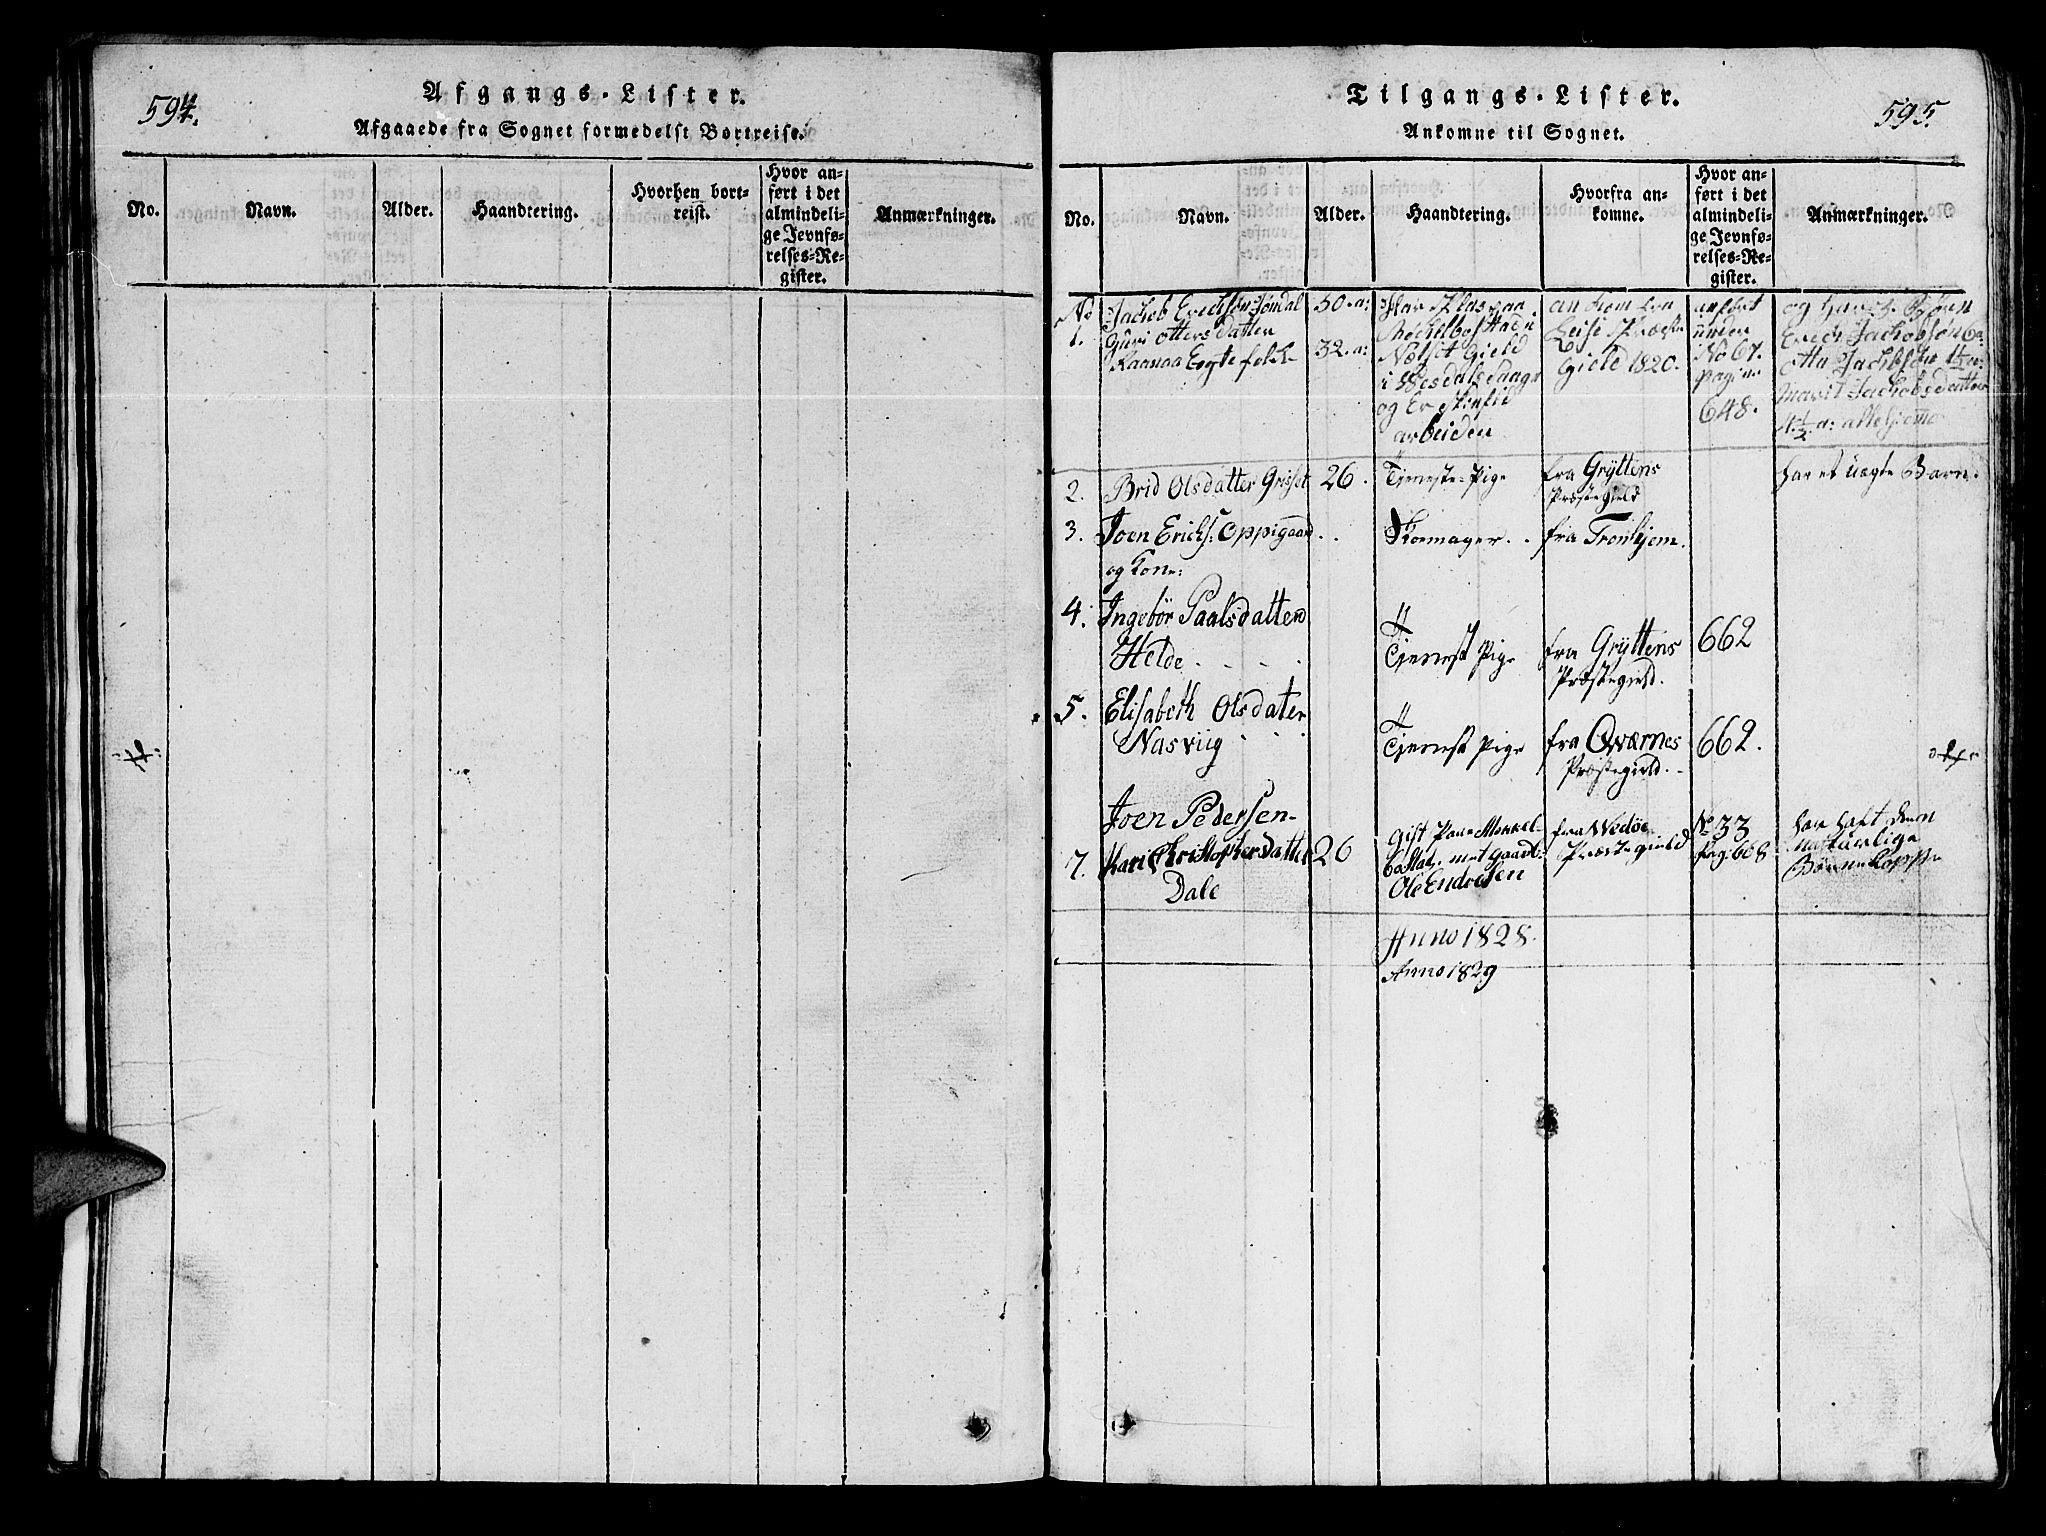 594.
Afgangs-Lister.
Afgaaede fra Sognet formedelst Bortreise.
No.
Navn.
Alder.
Haandtering.
Hvorhen bort-
reist.
Hvor an-
ført i det
almindeli-
ge Jevnfø-
relses-Re-
gister.
Anmærkninger.
595.
Tilgangs-Lister.
Ankomne til Sognet.
No.
Navn.
Alder.
Haandtering.
Hvorfra an-
komne.
Hvor an-
ført i det
almindeli-
ge Jevnfø-
relses-Re-
gister.
Anmærkninger.
No
1.
Jachob Erichsøn Jømdal
Guri Ottersdatten
Ægte folk
30. a:
32. a:
Gield
i
og
arbeiden
Gield 1820.
anført
under
No 67.
pagina
648.
og
Erich Jachobsøn 6 a:
Otto Jachobsøn 1½ a:
Marit Jachobsdatter
4½ a: alle
2.
Brid Olsdatter Grisset
26.
Tjeneste-Pige
fra Gryttens
Præstegield
har et uægte Barn.
3.
Joen Erichs: Oppigaard
og Kone:
Skomager
fra Tronhjem.
4.
Ingebør Paalsdatten
Helde
Tjenest Pige
fra Gryttens
Præstegield.
662
5.
Elisabeth Olsdaten
Nasviig
Tjenest Pige
fra Qværnes
Præstegield.
662.
Joen Pedersen
7.
Kari Christophersdatter
Dale
26
Gift paa Mekkel-
bostad med gaard
Ole Endresen
fra Wedöe
Præstegield
No 33
Pag. 668
har haft dem
naturlige
Børnekopper
Anno 1828.
Anno 1829